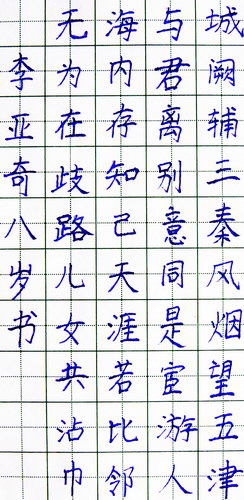 城阙辅三秦风烟望五津
与君离别意同是宦游人
海内存知己天涯若比邻
无为在歧路儿女共沾巾
李亚奇八岁书